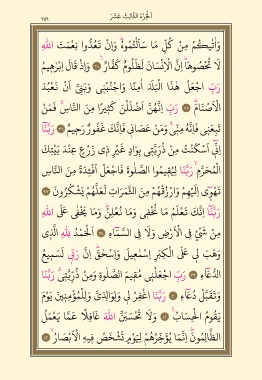 اَلْجُزْءُ الثَّالِثَ عَشَرَ ٢٥٩
وَاٰتٰيكُمْ مِنْ كُلِّ مَا سَاَلْتُمُوهُ وَاِنْ تَعُدُّوا نِعْمَتَ اللّٰهِ
لَا تُحْصُوهَا اِنَّ الْاِنْسَانَ لَظَلُومٌ كَفَّارٌ ۝ وَاِذْ قَالَ اِبْرٰهِيمُ
رَبِّ اجْعَلْ هٰذَا الْبَلَدَ اٰمِنًا وَاجْنُبْنِى وَبَنِىَّ اَنْ نَعْبُدَ
الْاَصْنَامَ ۝ رَبِّ اِنَّهُنَّ اَضْلَلْنَ كَثِيرًا مِنَ النَّاسِ فَمَنْ
تَبِعَنِى فَاِنَّهُ مِنِّى وَمَنْ عَصَانِى فَاِنَّكَ غَفُورٌ رَحِيمٌ ۝ رَبَّنَا
اِنِّى اَسْكَنْتُ مِنْ ذُرِّيَّتِى بِوَادٍ غَيْرِ ذِى زَرْعٍ عِنْدَ بَيْتِكَ
الْمُحَرَّمِ رَبَّنَا لِيُقِيمُوا الصَّلٰوةَ فَاجْعَلْ اَفْئِدَةً مِنَ النَّاسِ
تَهْوِى اِلَيْهِمْ وَارْزُقْهُمْ مِنَ الثَّمَرَاتِ لَعَلَّهُمْ يَشْكُرُونَ ۝
رَبَّنَا اِنَّكَ تَعْلَمُ مَا نُخْفِى وَمَا نُعْلِنُ وَمَا يَخْفٰى عَلَى اللّٰهِ
مِنْ شَىْءٍ فِى الْاَرْضِ وَلَا فِى السَّمَاءِ ۝ اَلْحَمْدُ لِلّٰهِ الَّذِى
وَهَبَ لِى عَلَى الْكِبَرِ اِسْمٰعِيلَ وَاِسْحٰقَ اِنَّ رَبِّى لَسَمِيعُ
الدُّعَاءِ ۝ رَبِّ اجْعَلْنِى مُقِيمَ الصَّلٰوةِ وَمِنْ ذُرِّيَّتِى رَبَّنَا
وَتَقَبَّلْ دُعَاءِ ۝ رَبَّنَا اغْفِرْ لِى وَلِوَالِدَىَّ وَلِلْمُؤْمِنِينَ يَوْمَ
يَقُومُ الْحِسَابُ ۝ وَلَا تَحْسَبَنَّ اللّٰهَ غَافِلًا عَمَّا يَعْمَلُ
الظَّالِمُونَ اِنَّمَا يُؤَخِّرُهُمْ لِيَوْمٍ تَشْخَصُ فِيهِ الْاَبْصَارُ ۝